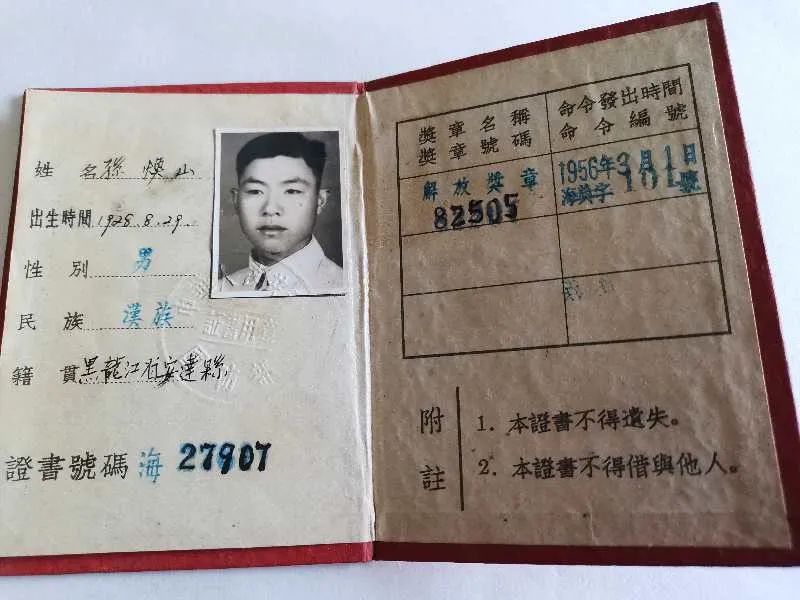 姓 名 孫煥山
出生時間 1928.8.29.
性 別 男
民 族 漢族
籍 貫 黑龍江省安達縣
證書號碼 海 27907
獎章名稱
獎章號碼
命令發出時間
命令編號
解放獎章
82505
1956年3月1日
海獎字101號
附註
1. 本證書不得遺失。
2. 本證書不得借與他人。